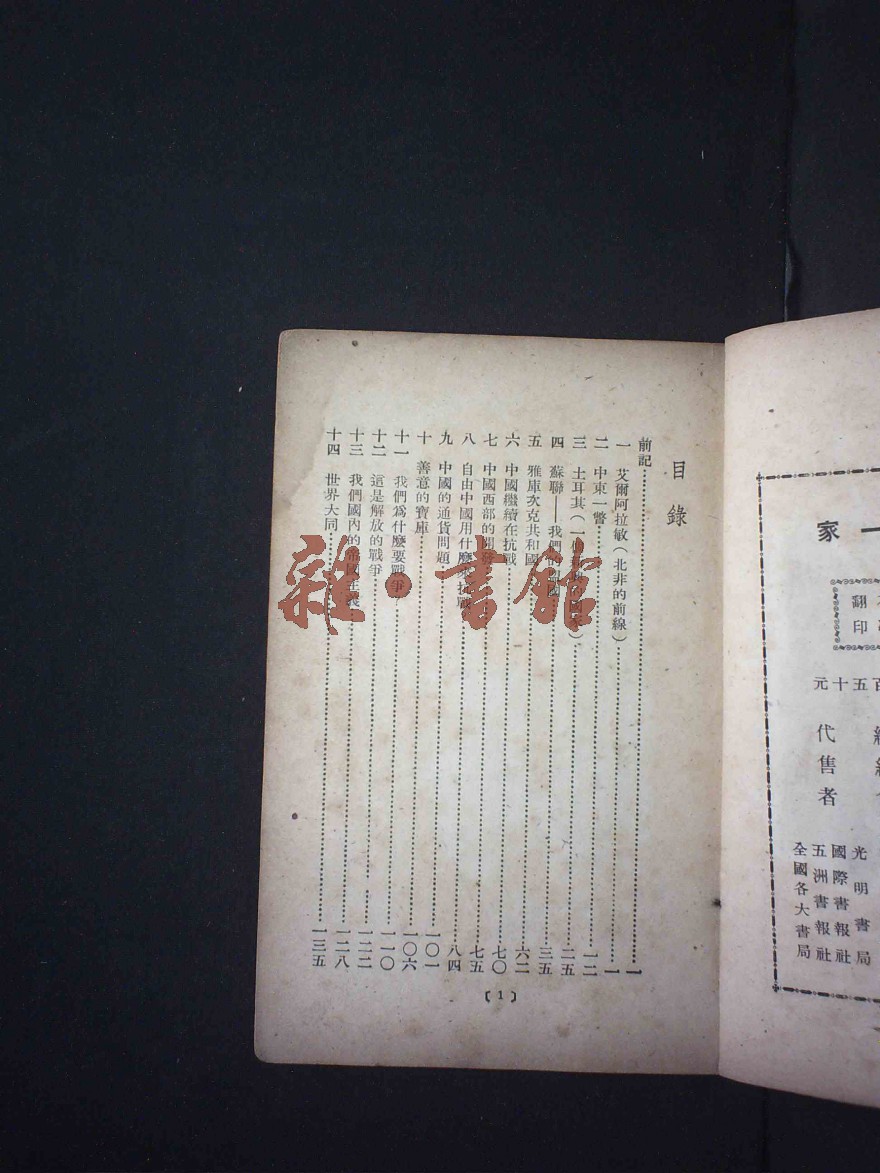 目錄
前記 一
一 艾爾阿拉敏（北非的前線） 一
二 中東一瞥 一二
三 土耳其（一個 二五
四 蘇聯——我們的 國 三五
五 雅庫次克共和國 六二
六 中國繼續在抗戰 七〇
七 中國西部的開發 七五
八 自由中國用什麼來抗戰 八四
九 中國的通貨問題 一〇一
十 善意的寶庫 一〇六
十一 我們為什麼要戰爭 一一〇
十二 這是解放的戰爭 一二二
十三 我們國內的帝國主義 一二八
十四 世界大同 一三五
〔1〕
一家
翻印
百五十元
代售者
光明書局
國際書報社
五洲書報社
全國各大書局
雜·書館